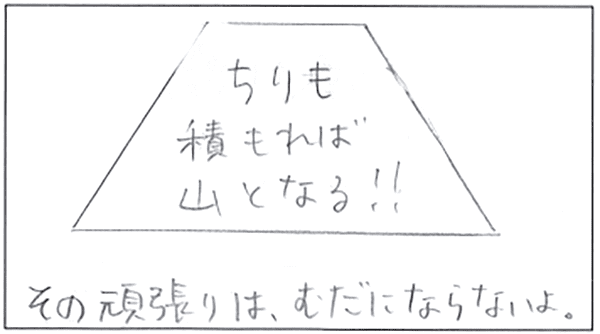 ちりも
積もれば
山となる!!
その頑張りは、むだにならないよ。